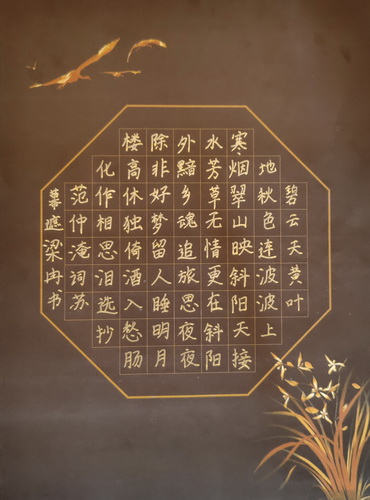 碧云天黄叶
地秋色连波波上
寒烟翠山映斜阳天接
水芳草无情更在斜阳
外黯乡魂追旅思夜夜
除非好梦留人睡明月
楼高休独倚酒入愁肠
化作相思泪选抄
范仲淹词苏
幕遮梁冉书